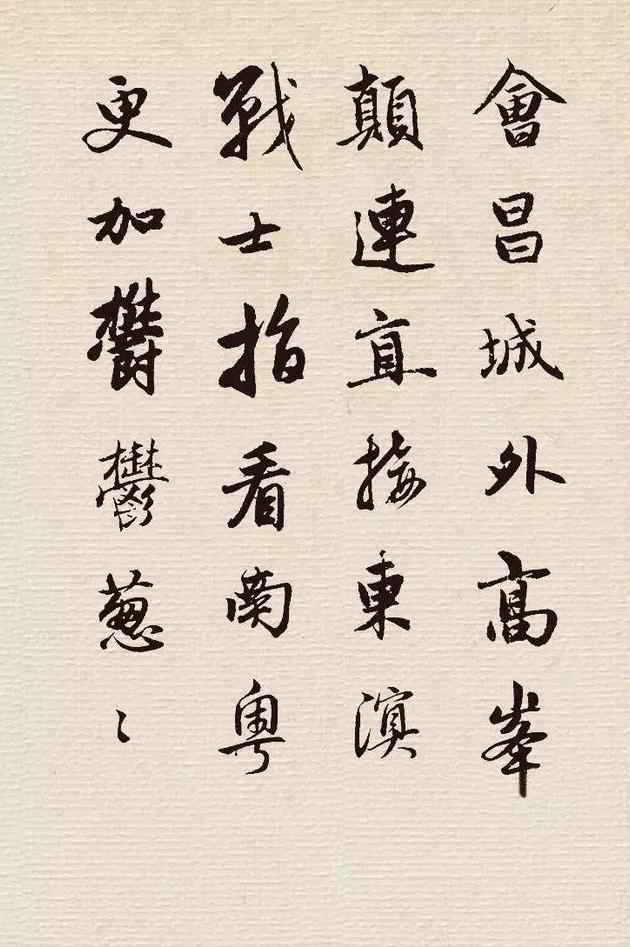 會昌城外高峯
顛連直接東溟
戰士指看南粵
更加鬱鬱蔥〻